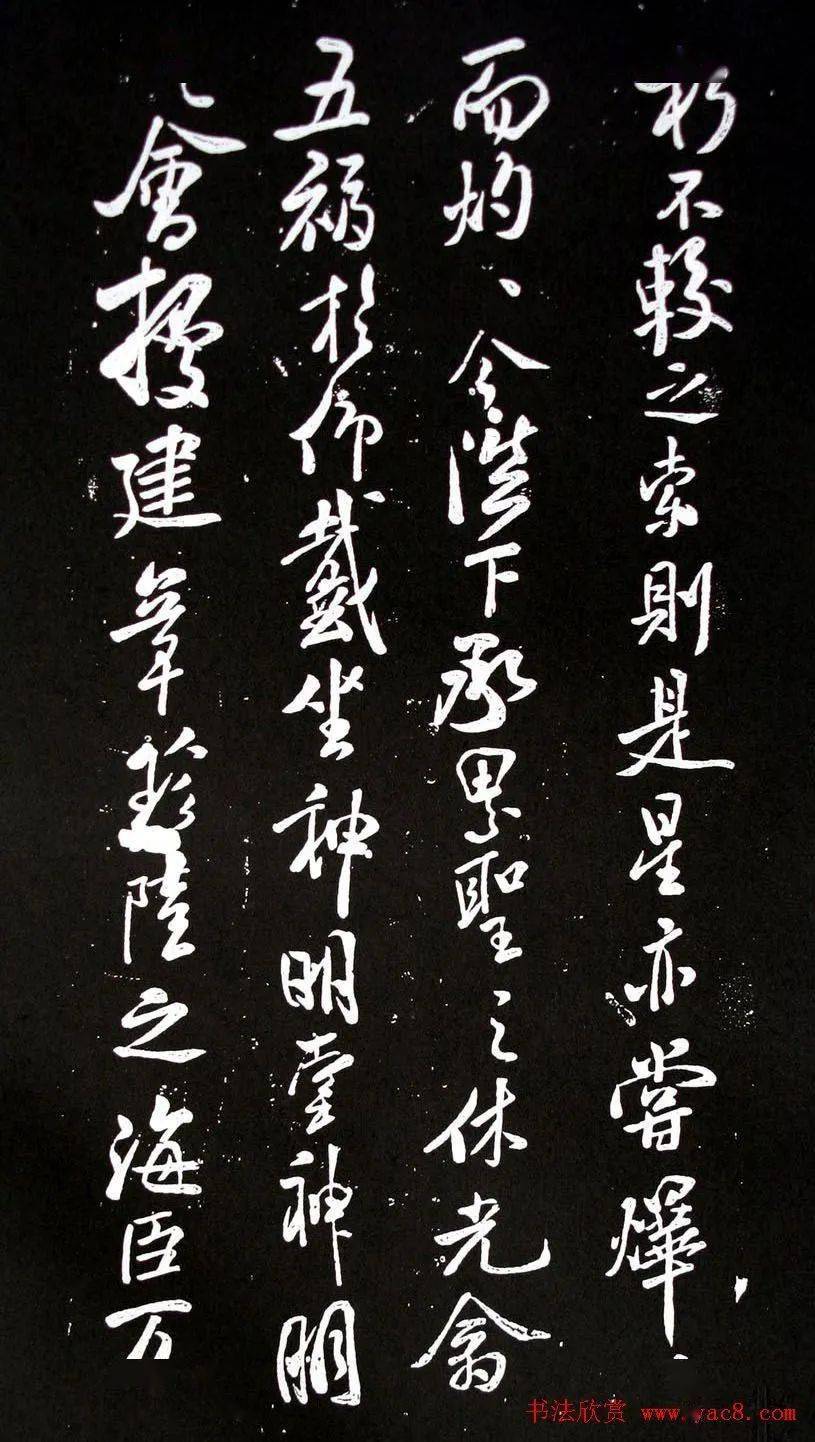 不較之索則是星亦嘗爗、
而灼、今陛下承累聖之休光翕
五福於仰戴坐神明堂神明
會建章陸之海臣万
书法欣赏 www.yac8.com